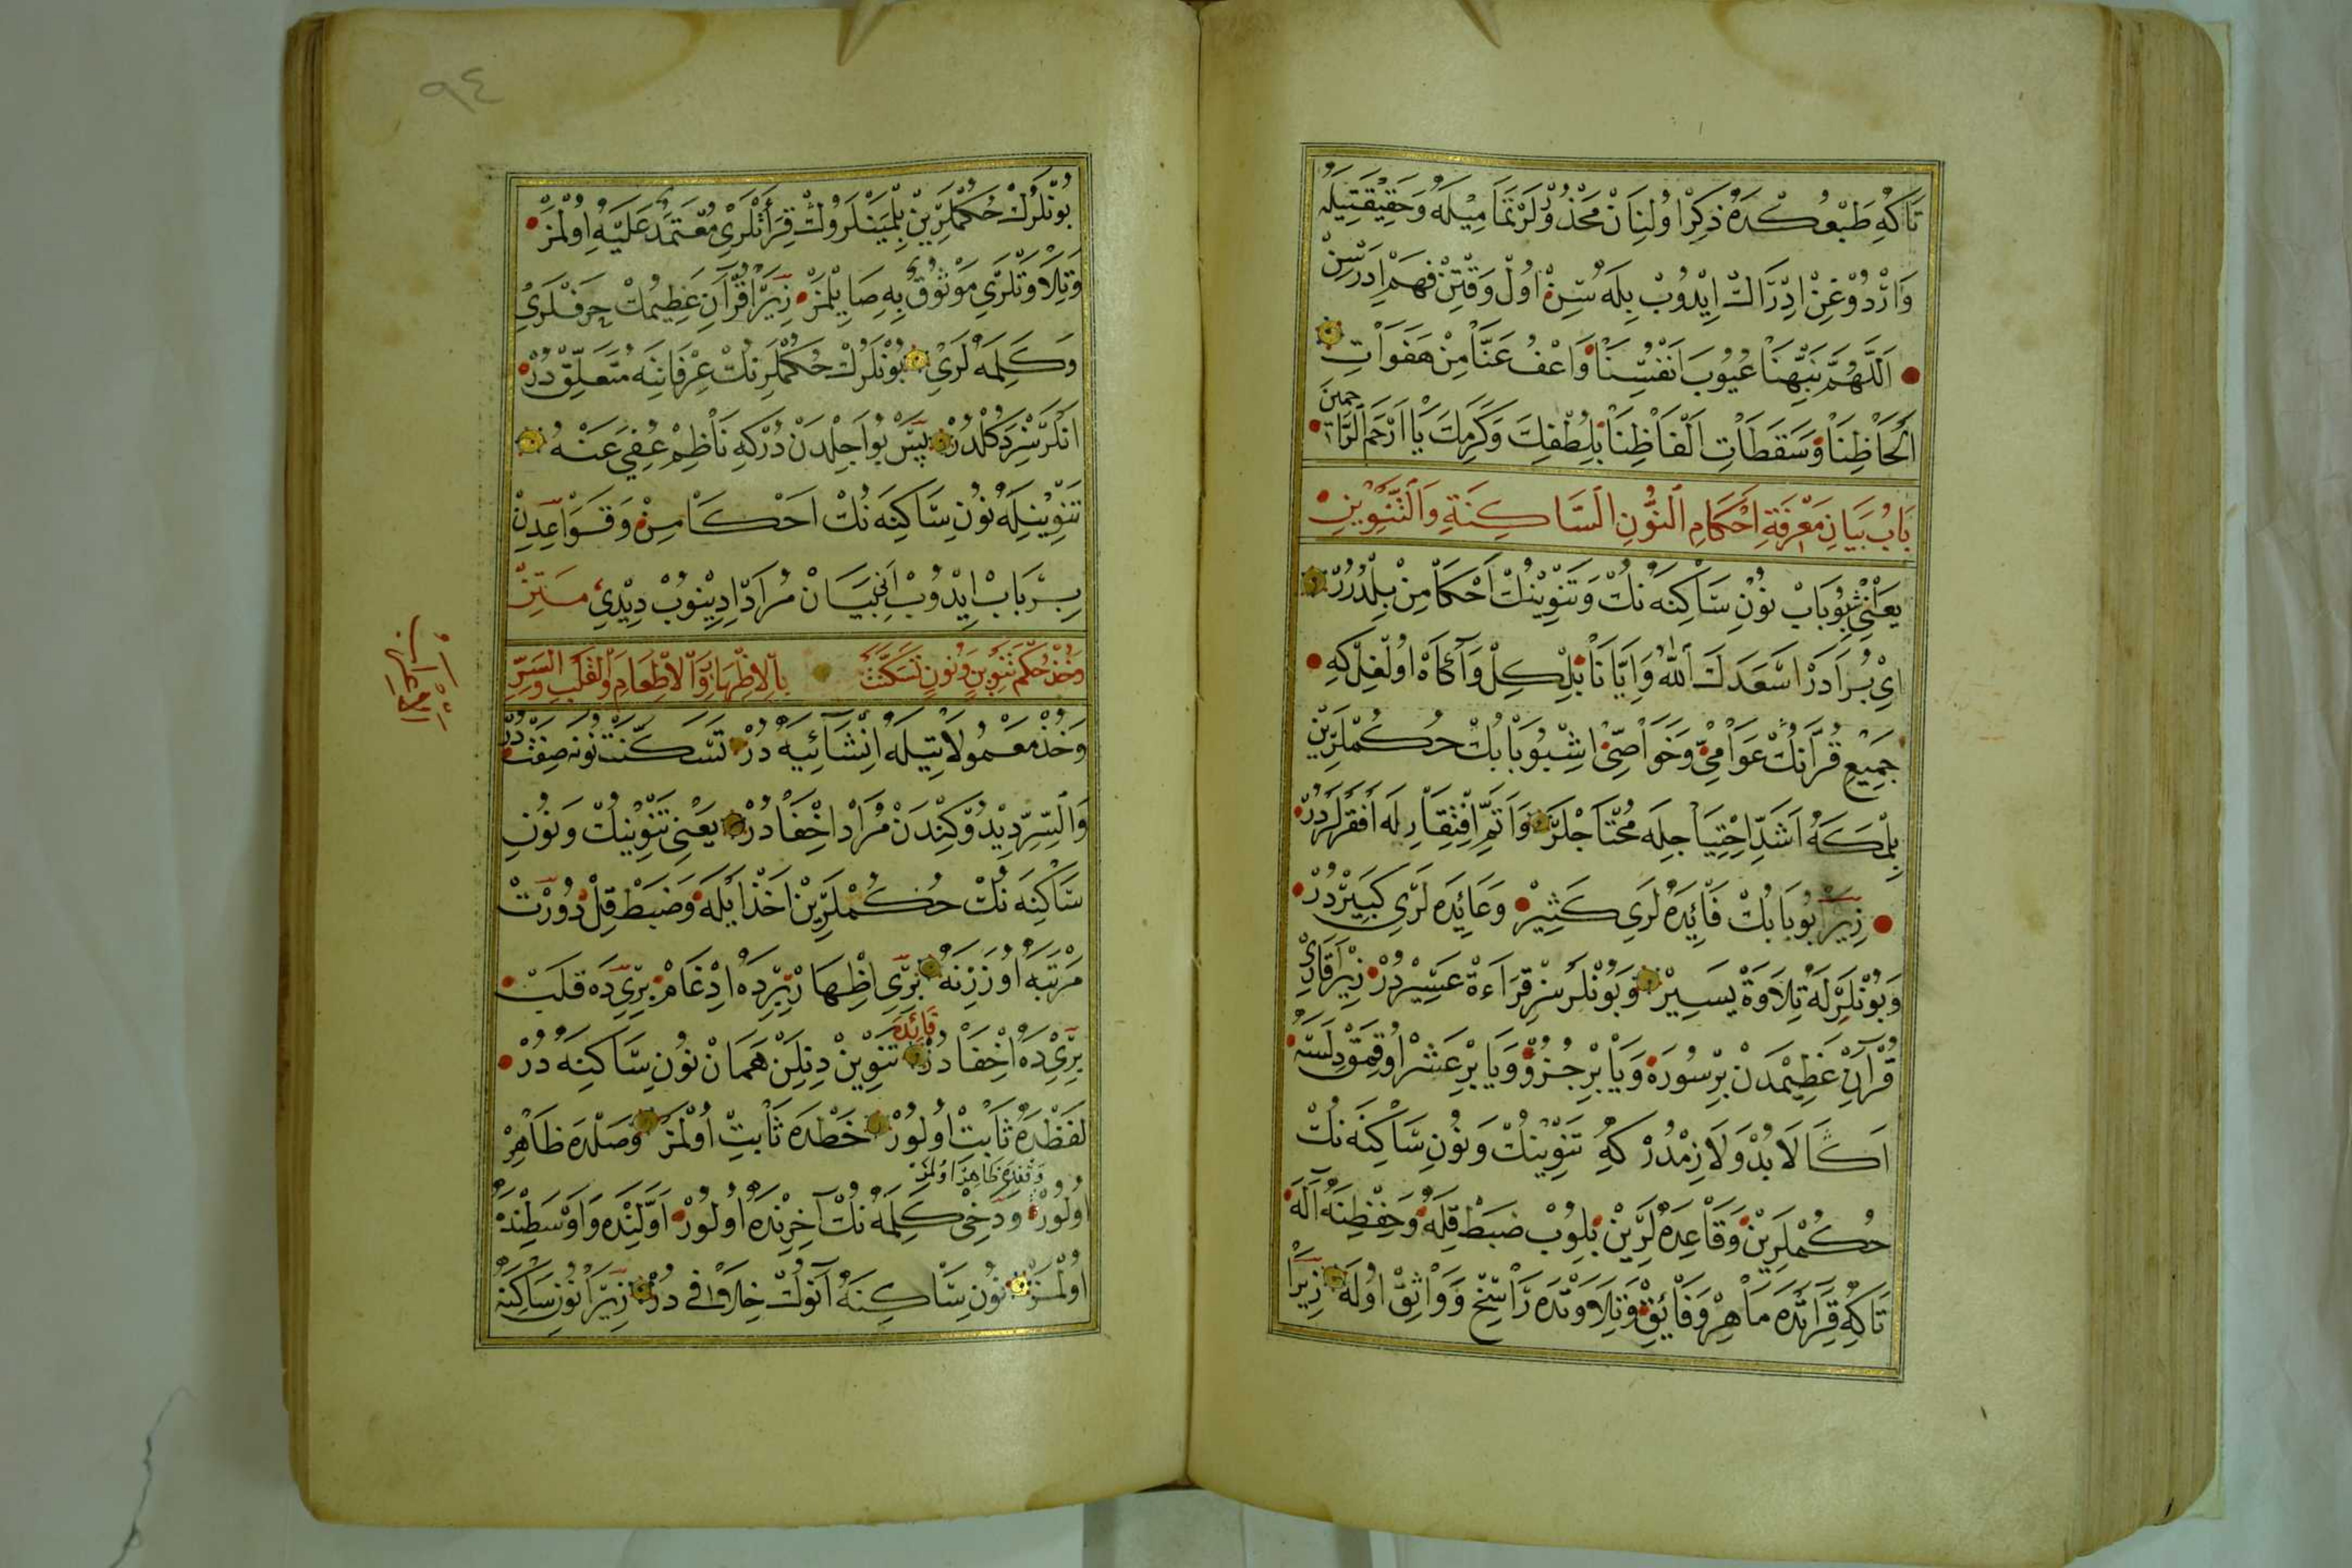 تَاكِه طَبْعُكْدَه ذِكْر اُولِنَانْ مَحْذُولَرْ تَمَامِيلَه وَحَقِيقَتِيلَه
وَارْدُوغِنْ اِدْرَاكْ اِيدُوبْ بِلَه سِنْ اُولْ وَقْتِنْ فَهْم اِدَرْسِنْ
اَللّٰهُمَّ نَبِّهْنَا عُيُوبَ اَنْفُسِنَا وَاعْفُ عَنَّا مِنْ هَفَوَاتِ
اَلْحَاظِنَا وَسَقَطَاتِ اَلْفَاظِنَا بِلُطْفِكَ وَكَرَمِكَ يَا اَرْحَمَ الرَّاحمين
بَابُ بَيَانِ مَعْرِفَةِ اَحْكَامِ النُّونِ السَّاكِنَةِ وَالتَّنْوِينِ
يَعْنِي شْبُو بَابْ نُونِ سَاكِنَه نُكْ وَتَنْوِينُكْ اَحْكَامِنْ بِلْدُرُرْ
اِي بُرَادَرْ اَسْعَدَكَ اللّٰهُ وَاِيَّانَا بِلْكِلْ وَآكَاهْ اُولْغِلْكِه
جَمِيعِ قُرْآنُكْ عَوَامِي وَخَوَاصِّي اِشْبُو بَابُكْ حُكُمْلَرِينْ
بِلْمَكَه اَشَدِّ اِحْتِيَاجِلَه مُحْتَاجْلَرْ وَاَتَمِّ اِفْتِقَارِلَه اَفْقَرْلَرْدُرْ
زِيرَا بُو بَابُكْ فَائِدَه لَرِي كَثِيرْ وَعَائِدَه لَرِي كَبِيرْدُرْ
وَبُونْلَرِلَه تِلَاوَة يَسِيرْ وَبُونْلَرْسِزْ قِرَاءَة عَسِيرْدُرْ زِيرَا قَارِي
قُرْآنِ عَظِيمْدَنْ بِرْ سُورَه وَيَا بِرْ جُزْؤ وَيَا بِرْ عَشْر اُوقُمَقْ دِلَسَه
اَكَا لَابُدْ وَلَازِمْدُرْ كِه تَنْوِينُكْ وَنُونِ سَاكِنَه نُكْ
حُكُمْلَرِينْ وَقَاعِدَه لَرِينْ بِلُوبْ ضَبْطْ قِلَه وَحِفْظِنَه آلَه
تَاكِه قِرَائَتْدَه مَاهِرْ وَفَائِقْ وَتِلَاوَتْدَه رَاسِخْ وَوَاثِقْ اُولَه زِيرَا
٩٤
بُونْلَرُكْ حُكُمْلَرِينْ بِلْمِيَنْلَرُوكْ قِرَائَتْلَرِي مُعْتَمَدٌ عَلَيْهِ اُولْمَزْ
وَتِلَاوَتْلَرِي مَوْثُوقٌ بِه صَايِلْمَزْ زِيرَا قُرْآنِ عَظِيمُكْ حَرْفْلَرِي
وَكَلِمَه لَرِي بُونْلَرُكْ حُكُمْلَرِنُكْ عِرْفَانِنَه مُتَعَلِّقْ دُرْ
اَنْلَرْسِزْ دَكُلْدُرْ پَسْ بُو اَجِلْدَنْ دُرْكِه نَاظِمْ عُفِيَ عَنْهُ
تَنْوِينِلَه نُونِ سَاكِنَه نُكْ اَحْكَامِنْ وَقَوَاعِدِنْ
بِرْ بَابْ اِيدُوبْ اَنِي بَيَانْ مُرَادْ اِدِينُوبْ دِيدِي مَتِنْ
وَخُذْ حُكْمَ تَنْوِينٍ وَنُونٍ تَسَكَّنَتْ بِالْاِظْهَارِ وَالْاِدْغَامِ وَالْقَلْبِ وَالسِّرِّ
وَخُذْ مَعْمُولَاتِيلَه اِنْشَائِيَه دُرْ تَسَكَّنَتْ نُونَه صِفَتْ دُرْ
وَالسِّرِّ دِيدُوكِنْدَنْ مُرَادْ اِخْفَادُرْ يَعْنِي تَنْوِينُكْ وَنُونِ
سَاكِنَه نُكْ حُكُمْلَرِينْ اَخْذ اَيْلَه وَضَبْطْ قِلْ دُورْتْ
مَرْتَبَه اُوزَرِنَه بِرِي اِظْهَارْ بِرِدَه اِدْغَامْ بِرِي دَه قَلْبْ
بِرِي دَه اِخْفَادُرْ فَائِدَه تَنْوِينْ دِنِلَنْ هَمَانْ نُونِ سَاكِنَه دُرْ
لَفْظْدَه ثَابِتْ اُولُورْ خَطْدَه ثَابِتْ اُولْمَزْ وَصْلْدَه ظَاهِرْ
اُولُورْ وَقْفْدَه ظَاهِرْ اُولْمَزْ وَدَخِي كَلِمَه نُكْ آخِرِنْدَه اُولُورْ اَوَّلِنْدَه وَاَوْسَطِنْدَه
اُولْمَزْ نُونِ سَاكِنَه آنُوكْ خِلَافِي دُرْ زِيرَا نُونِ سَاكِنَه